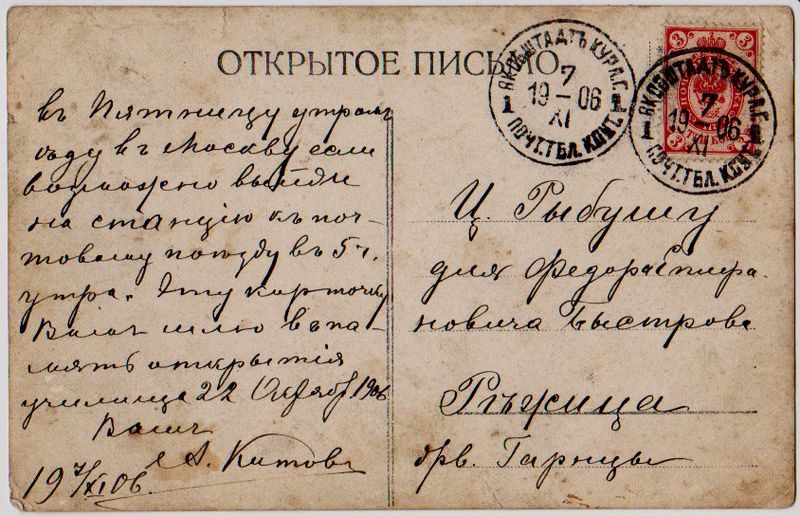 ОТКРЫТОЕ ПИСЬМО.
ЯКОБШТАДТЪ КУРЛ.Г.
7
19 — 06
XI
1 1
ПОЧТ.ТЕЛ. КОНТ.
3 3
3 3
ЯКОБШТАДТЪ КУРЛ.Г.
7
19 — 06
XI
1 1
ПОЧТ.ТЕЛ. КОНТ.
въ Пятницу утромъ
ѣду въ Москву если
возможно выйди
на станцію къ поч-
товому поѣзду въ 5 ч.
утра. Эту карточку
Вамъ шлю въ па-
мять открытія
училища 22 Октября 1906
Вашъ
А. Китовъ
19 7/XI 06.
Ц. Рыбушу
для Федора
новича Быстрова
Рѣжица
дрв. Гарнцы